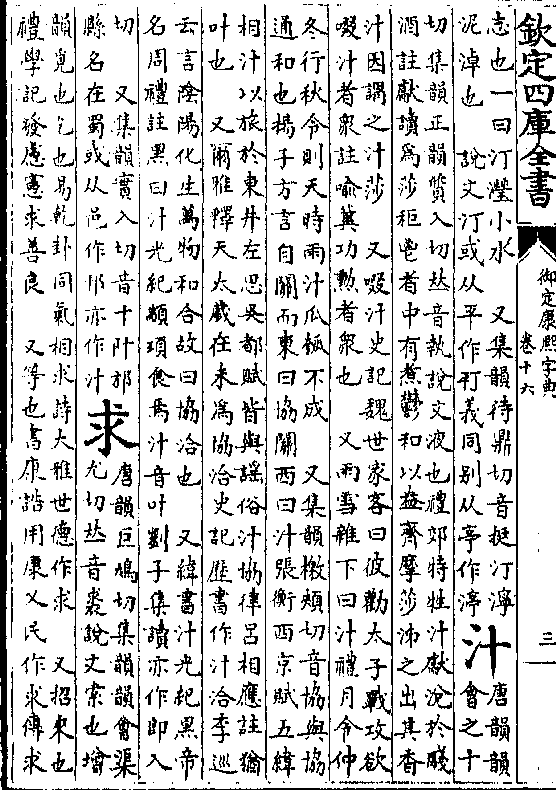 欽定四庫全書
御定康熙字典
卷十六
三
志也一曰汀瀅小水 又集韻待鼎切音挺汀濘
泥淖也 說文汀或从平作𣱼義同别从亭作渟 汁 唐韻韻會之十
切集韻正韻質入切𠀤音執說文液也禮郊特牲汁獻涗於醆
酒註獻讀為莎秬鬯者中有煮鬱和以盎齊摩莎泲之出其香
汁因謂之汁莎 又啜汁史記魏世家客曰彼勸太子戰攻欲
啜汁者衆註喻冀功勲者衆也 又雨雪雜下曰汁禮月令仲
冬行秋令則天時雨汁瓜瓠不成 又集韻檄頰切音協與協
通和也揚子方言自關而東曰協關西曰汁張衡西京賦五緯
相汁以旅於東井左思吳都賦皆與謠俗汁協律呂相應註猶
叶也 又爾雅釋天太歲在未為協洽史記歷書作汁洽李巡
云言陰陽化生萬物和合故曰協洽也 又緯書汁光紀黑帝
名周禮註黑曰汁光紀顓頊食焉汁音叶劉子集讀亦作卽入
切 又集韻實入切音十什邡
縣名在蜀或从邑作䢕亦作汁 求 唐韻巨鳩切集韻韻會渠尤切𠀤音裘說文索也增
韻覓也乞也易乾卦同氣相求詩大雅世德作求 又招來也
禮學記發慮憲求善良 又等也書康誥用康乂民作求傳求